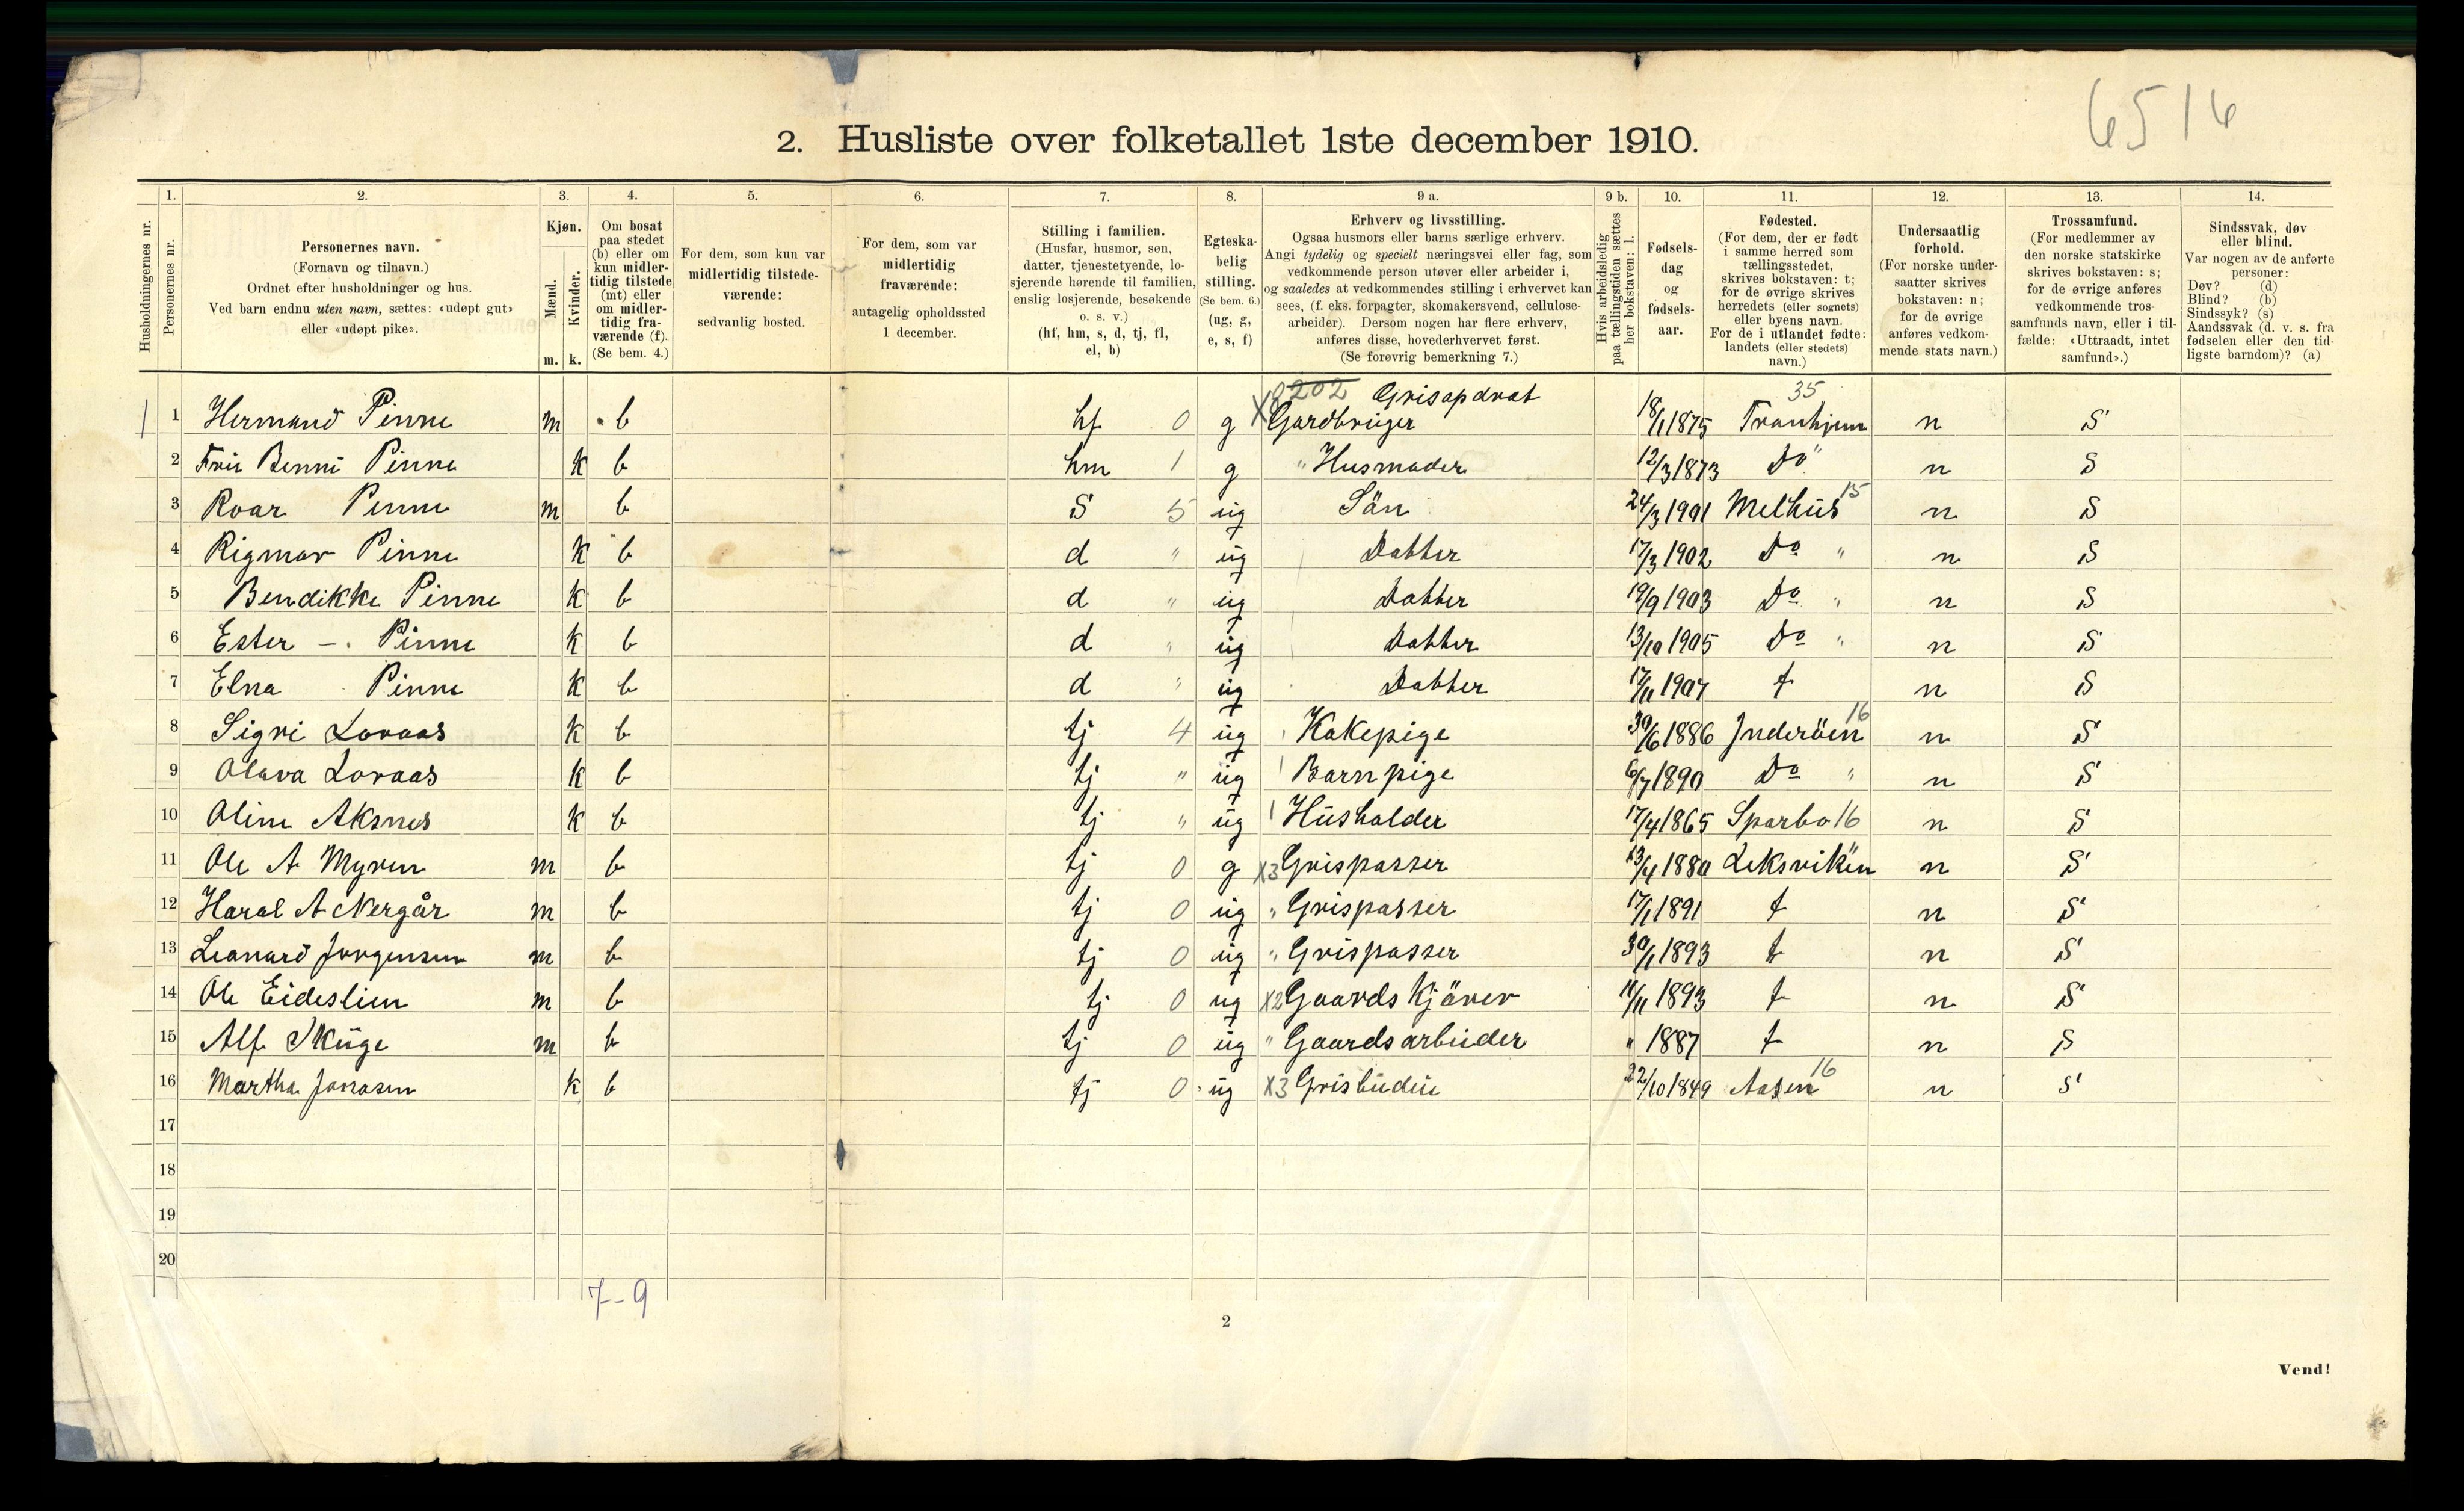 6516
2. Husliste over folketallet 1ste december 1910.
Husholdningernes nr.
1. Personernes nr.
2. Personernes navn.
(Fornavn og tilnavn.)
Ordnet efter husholdninger og hus.
Ved barn endnu uten navn, sættes: «udøpt gut»
eller «udøpt pike».
3. Kjøn.
Mænd. m.
Kvinder. k.
4. Om bosat
paa stedet
(b) eller om
kun midler-
tidig tilstede
(mt) eller
om midler-
tidig fra-
værende (f).
(Se bem. 4.)
5. For dem, som kun var
midlertidig tilstede-
værende:
sedvanlig bosted.
6. For dem, som var
midlertidig
fraværende:
antagelig opholdssted
1 december.
7. Stilling i familien.
(Husfar, husmor, søn,
datter, tjenestetyende, lo-
sjerende hørende til familien,
enslig losjerende, besøkende
o. s. v.)
(hf, hm, s, d, tj, fl,
el, b)
8. Egteska-
belig
stilling.
(Se bem. 6.)
(ug, g,
e, s, f)
9 a. Erhverv og livsstilling.
Ogsaa husmors eller barns særlige erhverv.
Angi tydelig og specielt næringsvei eller fag, som
vedkommende person utøver eller arbeider i,
og saaledes at vedkommendes stilling i erhvervet kan
sees, (f. eks. forpagter, skomakersvend, cellulose-
arbeider). Dersom nogen har flere erhverv,
anføres disse, hovederhvervet først.
(Se forøvrig bemerkning 7.)
9 b. Hvis arbeidsledig
paa tællingstiden sættes
her bokstaven: l.
10. Fødsels-
dag
og
fødsels-
aar.
11. Fødested.
(For dem, der er født
i samme herred som
tællingsstedet,
skrives bokstaven: t;
for de øvrige skrives
herredets (eller sognets)
eller byens navn.
For de i utlandet fødte:
landets (eller stedets)
navn.)
12. Undersaatlig
forhold.
(For norske under-
saatter skrives
bokstaven: n;
for de øvrige
anføres vedkom-
mende stats navn.)
13. Trossamfund.
(For medlemmer av
den norske statskirke
skrives bokstaven: s;
for de øvrige anføres
vedkommende tros-
samfunds navn, eller i til-
fælde: «Uttraadt, intet
samfund».)
14. Sindssvak, døv
eller blind.
Var nogen av de anførte
personer:
Døv? (d)
Blind? (b)
Sindssyk? (s)
Aandssvak (d. v. s. fra
fødselen eller den tid-
ligste barndom)? (a)
202 Grisopdræt 35
1 1 Hermand Pinne m b hf 0 g Gardbruger 18/1 1875 Tronhjem n S
2 Fru Benni Pinne K b hm 1 g " Husmoder 12/3 1873 Do " n S
3 Roar Pinne m b S 5 ug Sön 24/3 1901 Melhus 15 n S
4 Rigmor Pinne K b d " ug Datter 17/3 1902 Do " n S
5 Bendikke Pinne K b d " ug Datter 19/9 1903 Do " n S
6 Ester -. Pinne K b d " ug Datter 13/10 1905 Do " n S
7 Elna Pinne K b d " ug Datter 17/11 1907 t n S
8 Sigri Lovaas K b tj 4 ug Kokepige 30/6 1886 Inderöen 16 n S
9 Olava Lovaas K b tj " ug Barnpige 6/7 1890 Do " n S
10 Oline Aksnes K b tj " ug Husholder 17/4 1865 Sparbo 16 n S
11 Ole A Myren m b tj 0 g X3 Grispasser 13/4 1880 Leksviken n S
12 Haral A Nergår m b tj 0 ug " Grispasser 17/1 1891 t n S
13 Leonard Jorgensen m b tj 0 ug " Grispasser 30/1 1893 t n S
14 Ole Eideslien m b tj 0 ug X2 Gaards Kjörer 11/11 1893 t n S
15 Alf Skuge m b tj 0 ug " Gaardsarbeider " 1887 t n S
16 Martha Jonasen k b tj 0 ug X3 Grisbudeie 22/10 1849 Aasen 16 n S
17
18
19
20
7-9
2
Vend!